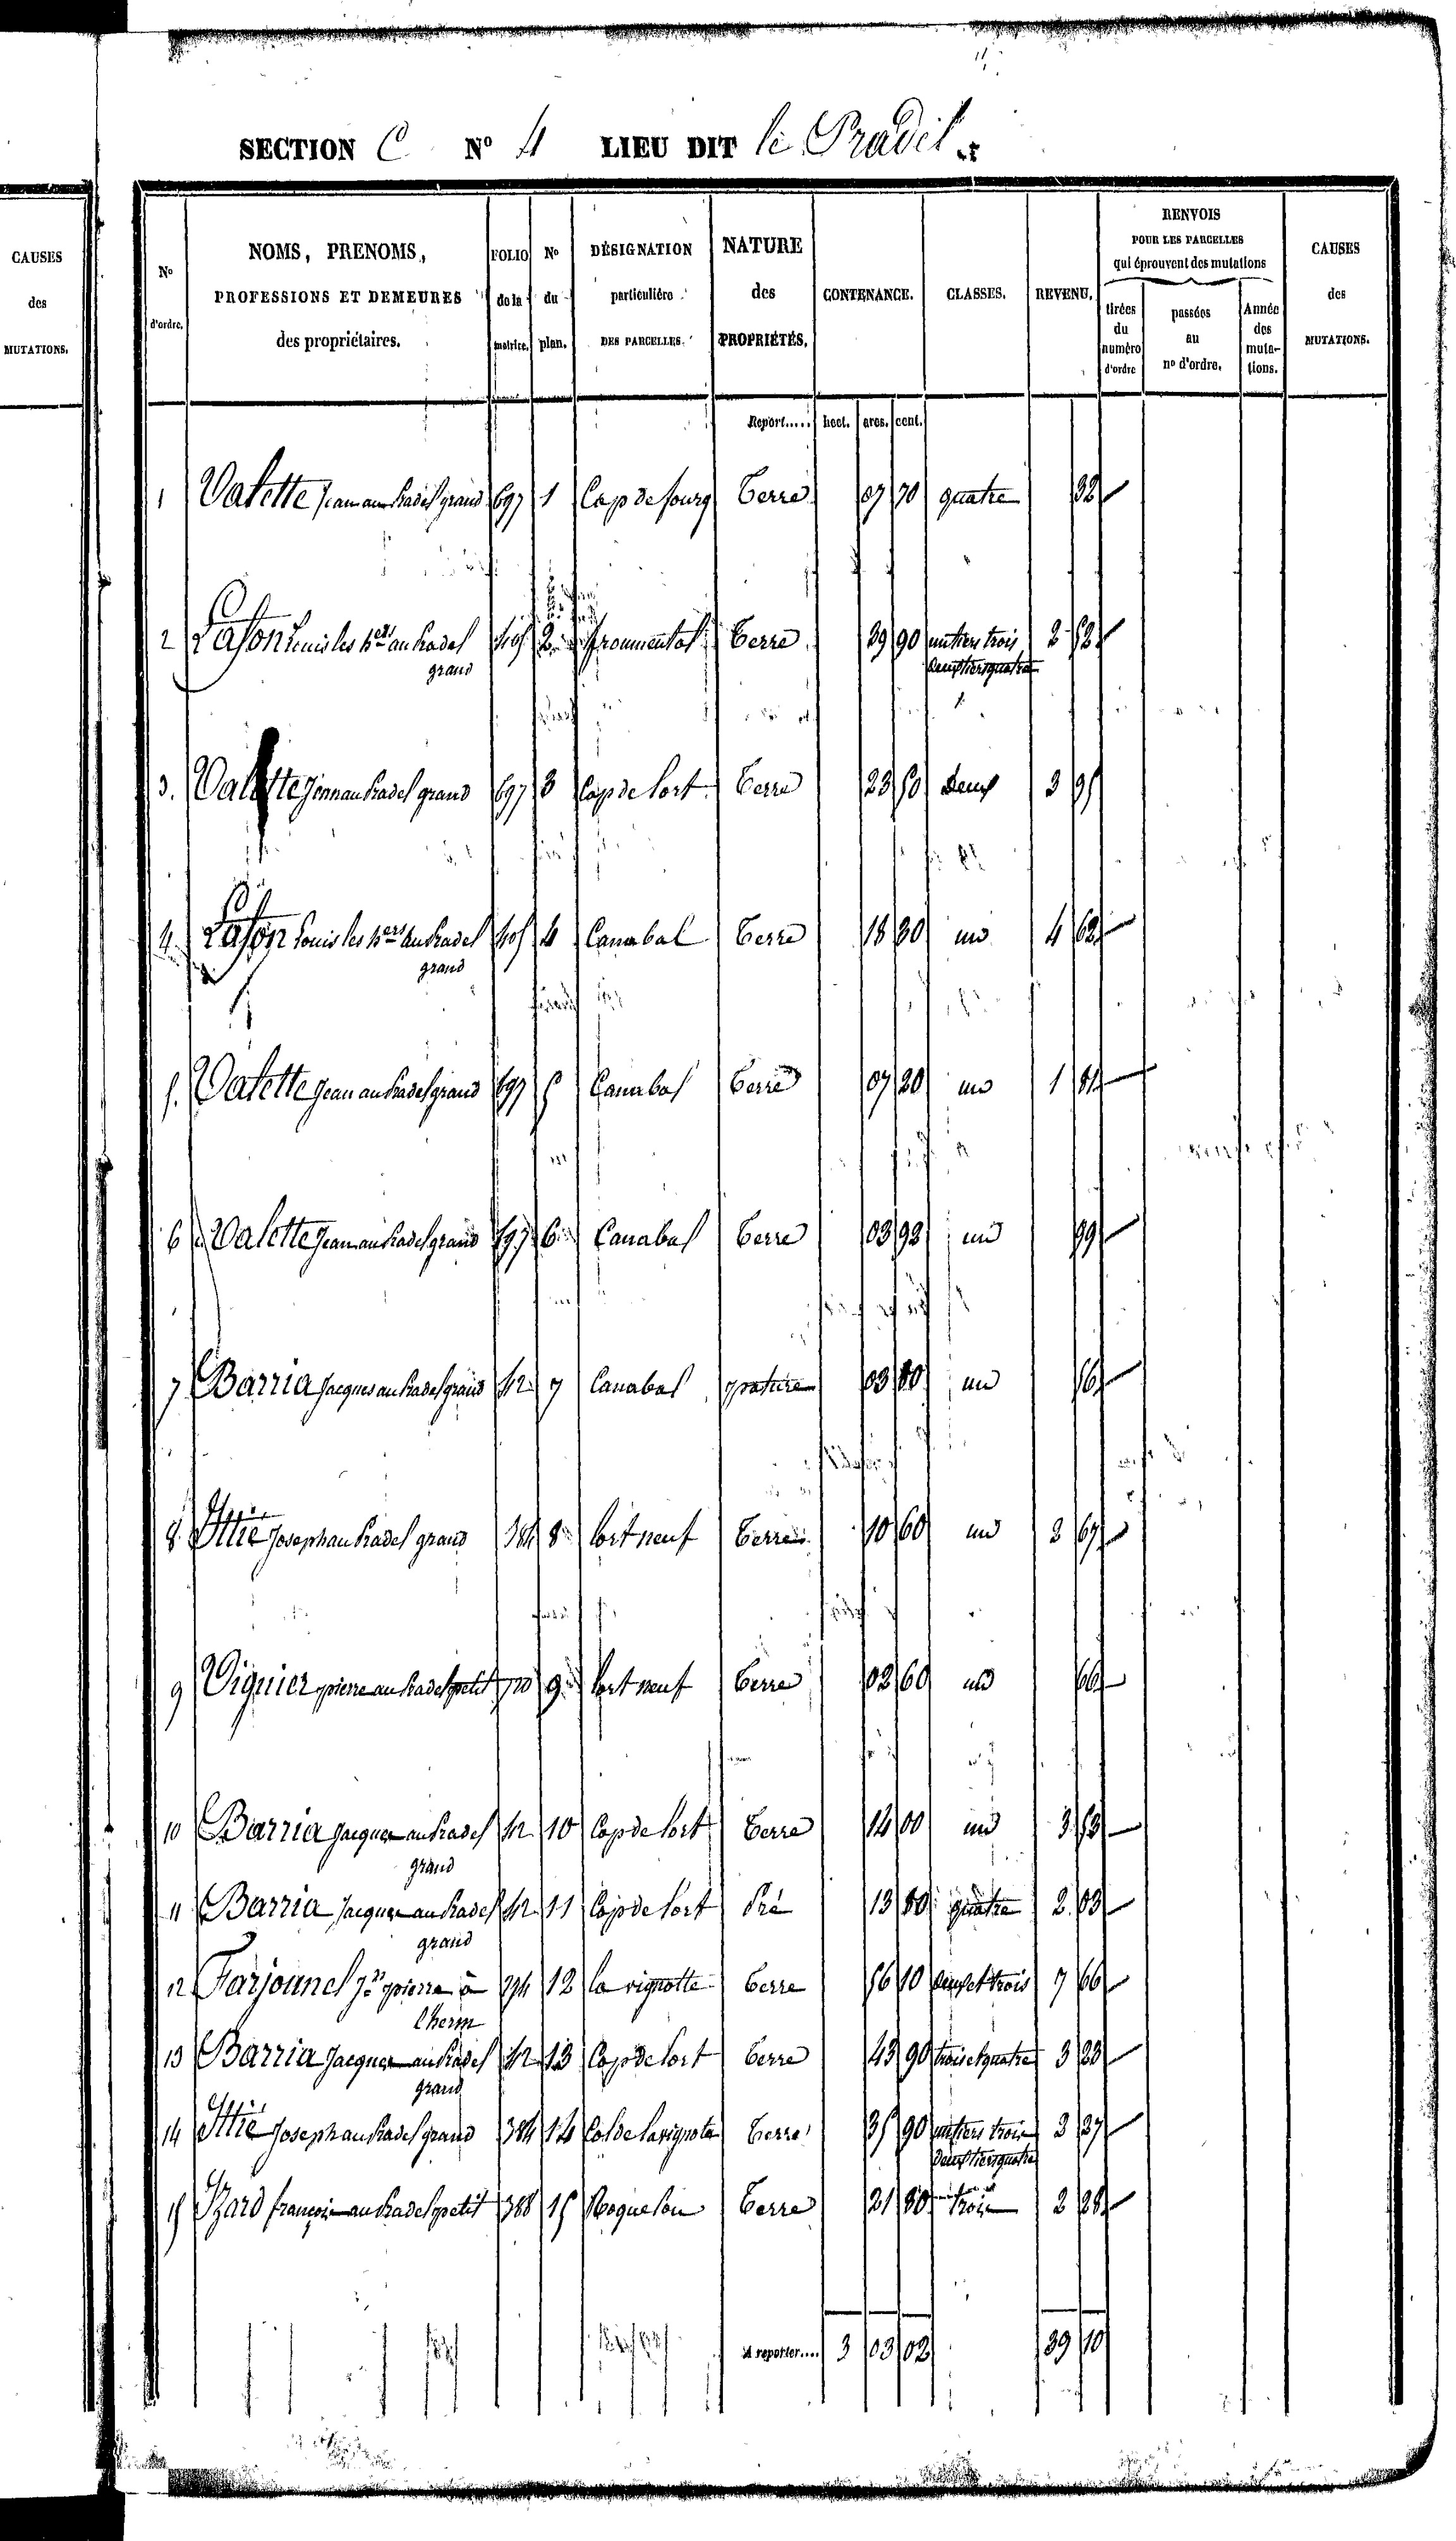 SECTION C Nº 4 LIEU DIT le Pradel
CAUSES
des
MUTATIONS.
Nº
d'ordre.
NOMS, PRENOMS,
PROFESSIONS ET DEMEURES
des propriétaires.
FOLIO
de la
matrice.
Nº
du
plan.
DÉSIGNATION
particulière
DES PARCELLES.
NATURE
des
PROPRIÉTÉS.
CONTENANCE.
CLASSES.
REVENU.
RENVOIS
POUR LES PARCELLES
qui éprouvent des mutations
tirées
du
numéro
d'ordre
passées
au
nº d'ordre.
Année
des
muta-
tions.
CAUSES
des
MUTATIONS.
Report..... hect. ares. cent.
1 Valette Jean au Pradel grand 697 1 Cap de Terre 07 70 quatre 32
2 Lafon Louis les hers au Pradel 405 2 froumental Terre 39 90 un tiers trois 2 52
grand deux tiers quatre
3. Valette Jean au Pradel grand 697 3 Cap de lort Terre 23 50 deux 3 95
4. Lafon Louis les hers au Pradel 405 4 Canabal Terre 18 30 un 4 62
grand
5. Valette Jean au Pradel grand 697 5 Canabal Terre 07 20 un 1 81
6 Valette Jean au Pradel grand 697 6 Canabal Terre 03 92 un 99
7 Barria Jacques au Pradel grand 42 7 Canabal pature 03 80 un 16
8 Ittié Joseph au Pradel grand 384 8 lort neuf Terre 10 60 un 2 67
9 Viguier pierre au Pradel petit 720 9 lort neuf Terre 02 60 un 66
10 Barria Jacques au Pradel 42 10 Cap de lort Terre 14 00 un 3 53
grand
11 Barria Jacques au Pradel 42 11 Cap de lort Pré 13 80 quatre 2 03
grand
12 Farjounel Jn pierre à 294 12 la vignotte Terre 56 10 deux et trois 7 66
Lherm
13 Barria Jacques au Pradel 42 13 Cap de lort Terre 43 90 trois et quatre 3 23
grand
14 Ittié Joseph au Pradel grand 384 14 Col de la vignote Terre 35 90 un tiers trois 2 27
deux tiers quatre
15 Izard françois au Pradel petit 388 15 Roquelou Terre 21 80 trois 2 28
A reporter.... 3 03 02 39 10